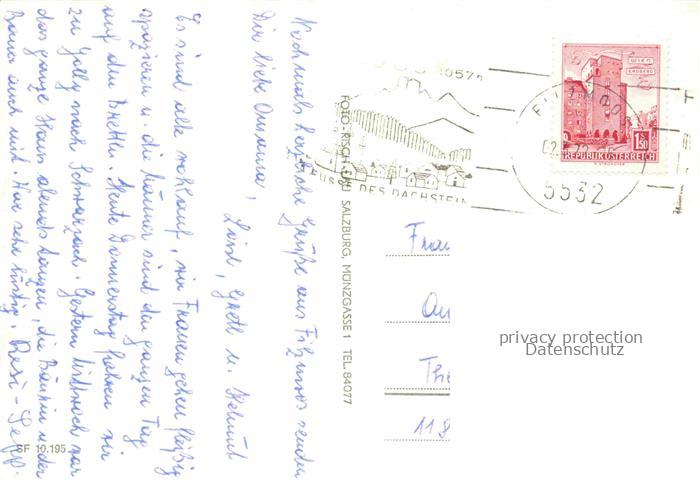 Nochmals herzliche Grüße aus Filzmoos senden
Dir liebe
Liesl, Gretl u. Helmut
Es sind alle wohlauf, wir Frauen gehen fleißig
spazieren u. die Männer sind den ganzen Tag
auf den Brettln. Heute Donnerstag fahren wir
zu Gelly nach Schwarzach. Gestern Mittwoch war
das ganze Haus abends tanzen, die Bäuerin u. der
Bauer auch mit. War sehr lustig. Resi - Sepp.
SF 10.195
FOTO-RISCH-LAU SALZBURG, MÜNZGASSE 1 TEL. 84077
1057m
FUSSE DES DACHSTEIN
FILZMOOS
5532
WIEN
ERDBERG
1.50
REPUBLIK ÖSTERREICH
Frau
The
118
privacy protection
Datenschutz